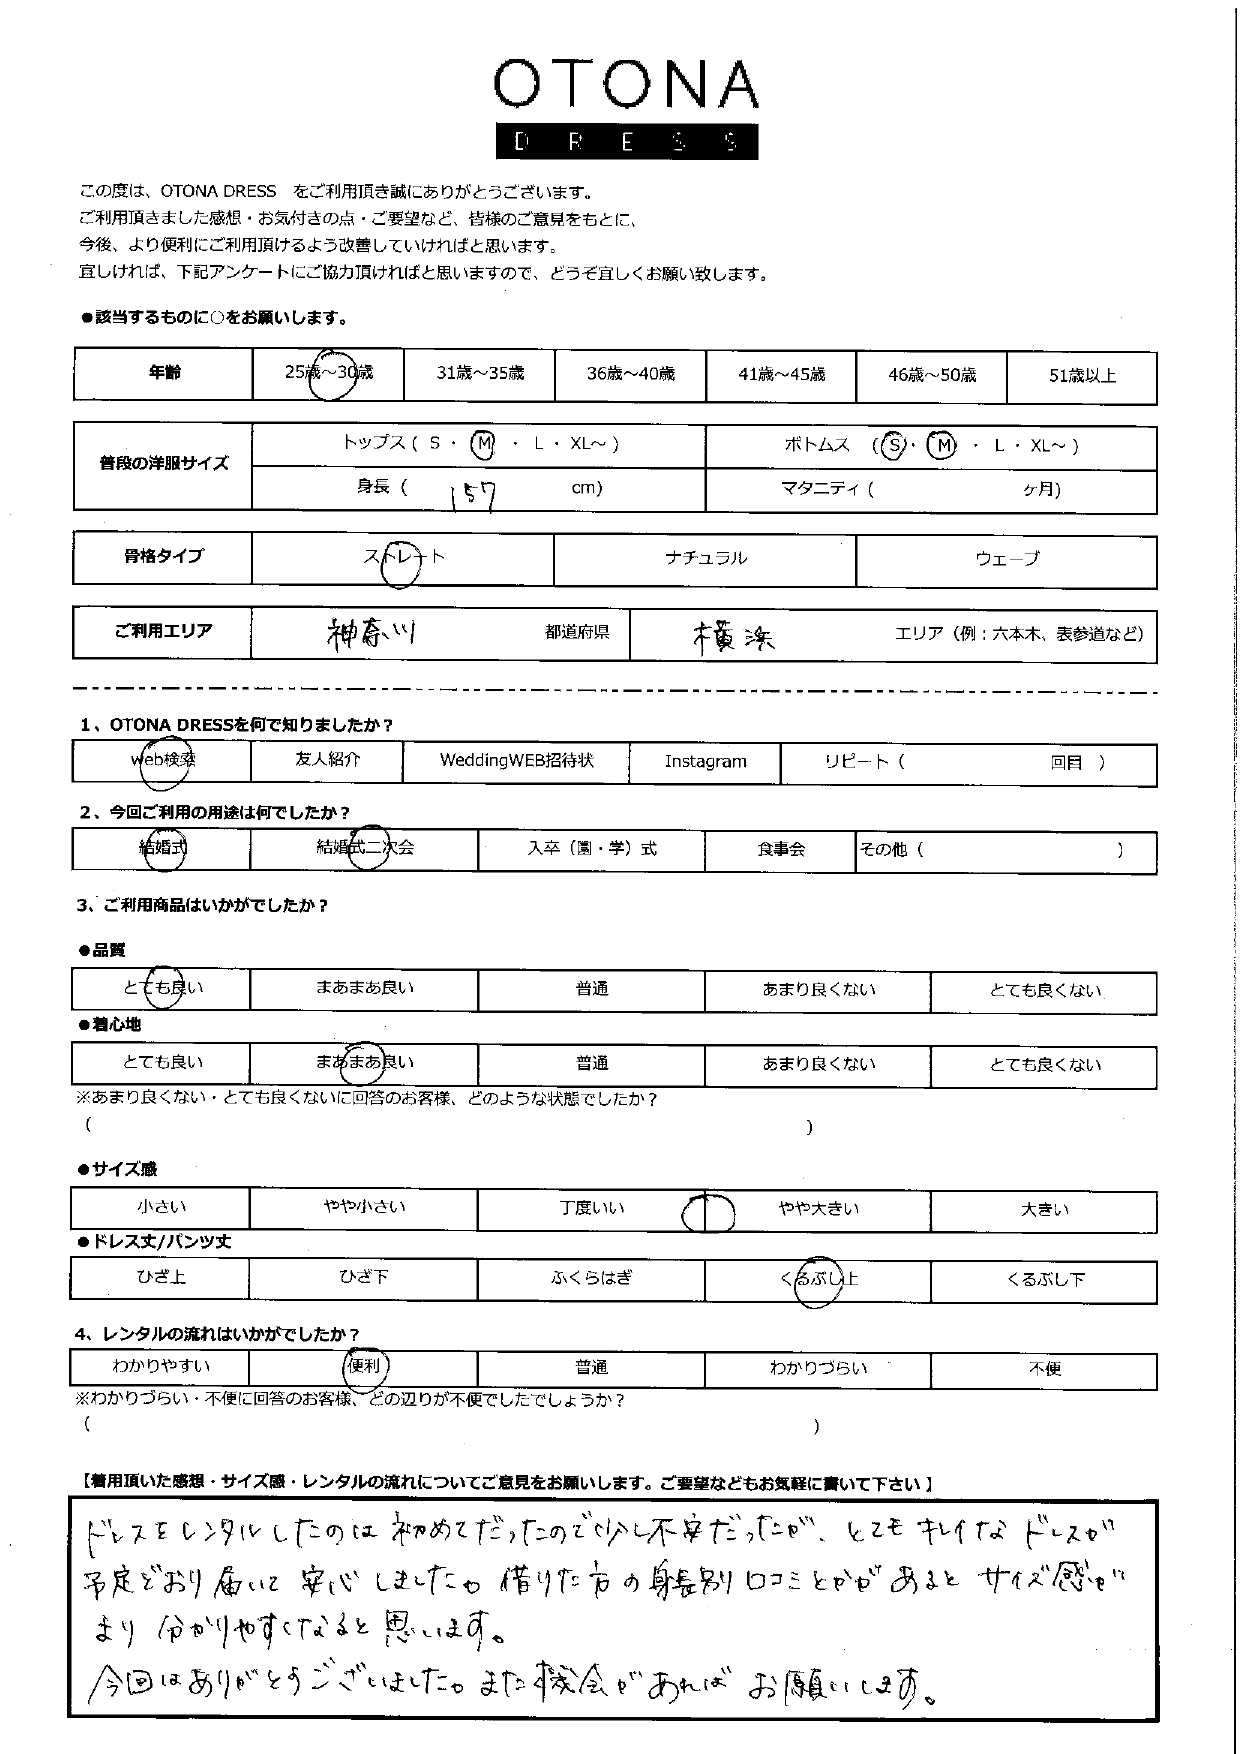 OTONA
DRESS
この度は、OTONA DRESS をご利用頂き誠にありがとうございます。
ご利用頂きました感想・お気付きの点・ご要望など、皆様のご意見をもとに、
今後、より便利にご利用頂けるよう改善していければと思います。
宜しければ、下記アンケートにご協力頂ければと思いますので、どうぞ宜しくお願い致します。
●該当するものに○をお願いします。
年齢 25歳～30歳 31歳～35歳 36歳～40歳 41歳～45歳 46歳～50歳 51歳以上
普段の洋服サイズ トップス ( S ・ M ・ L ・ XL～ ) ボトムス ( S ・ M ・ L ・ XL～ )
身長 ( 157 cm) マタニティ ( ヶ月)
骨格タイプ ストレート ナチュラル ウェーブ
ご利用エリア 神奈川 都道府県 横浜 エリア（例：六本木、表参道など）
1、OTONA DRESSを何で知りましたか？
web検索 友人紹介 WeddingWEB招待状 Instagram リピート（ 回目 ）
2、今回ご利用の用途は何でしたか？
結婚式 結婚式二次会 入卒（園・学）式 食事会 その他（ ）
3、ご利用商品はいかがでしたか？
●品質
とても良い まあまあ良い 普通 あまり良くない とても良くない
●着心地
とても良い まあまあ良い 普通 あまり良くない とても良くない
※あまり良くない・とても良くないに回答のお客様、どのような状態でしたか？
( )
●サイズ感
小さい やや小さい 丁度いい やや大きい 大きい
●ドレス丈/パンツ丈
ひざ上 ひざ下 ふくらはぎ くるぶし上 くるぶし下
4、レンタルの流れはいかがでしたか？
わかりやすい 便利 普通 わかりづらい 不便
※わかりづらい・不便に回答のお客様、どの辺りが不便でしたでしょうか？
( )
【着用頂いた感想・サイズ感・レンタルの流れについてご意見をお願いします。ご要望などもお気軽に書いて下さい】
ドレスをレンタルしたのは初めてだったので少し不安だったが、とてもキレイなドレスが
予定どおり届いて安心しました。借りた方の身長別口コミとかがあるとサイズ感が
より分かりやすくなると思います。
今回はありがとうございました。また機会があればお願いします。